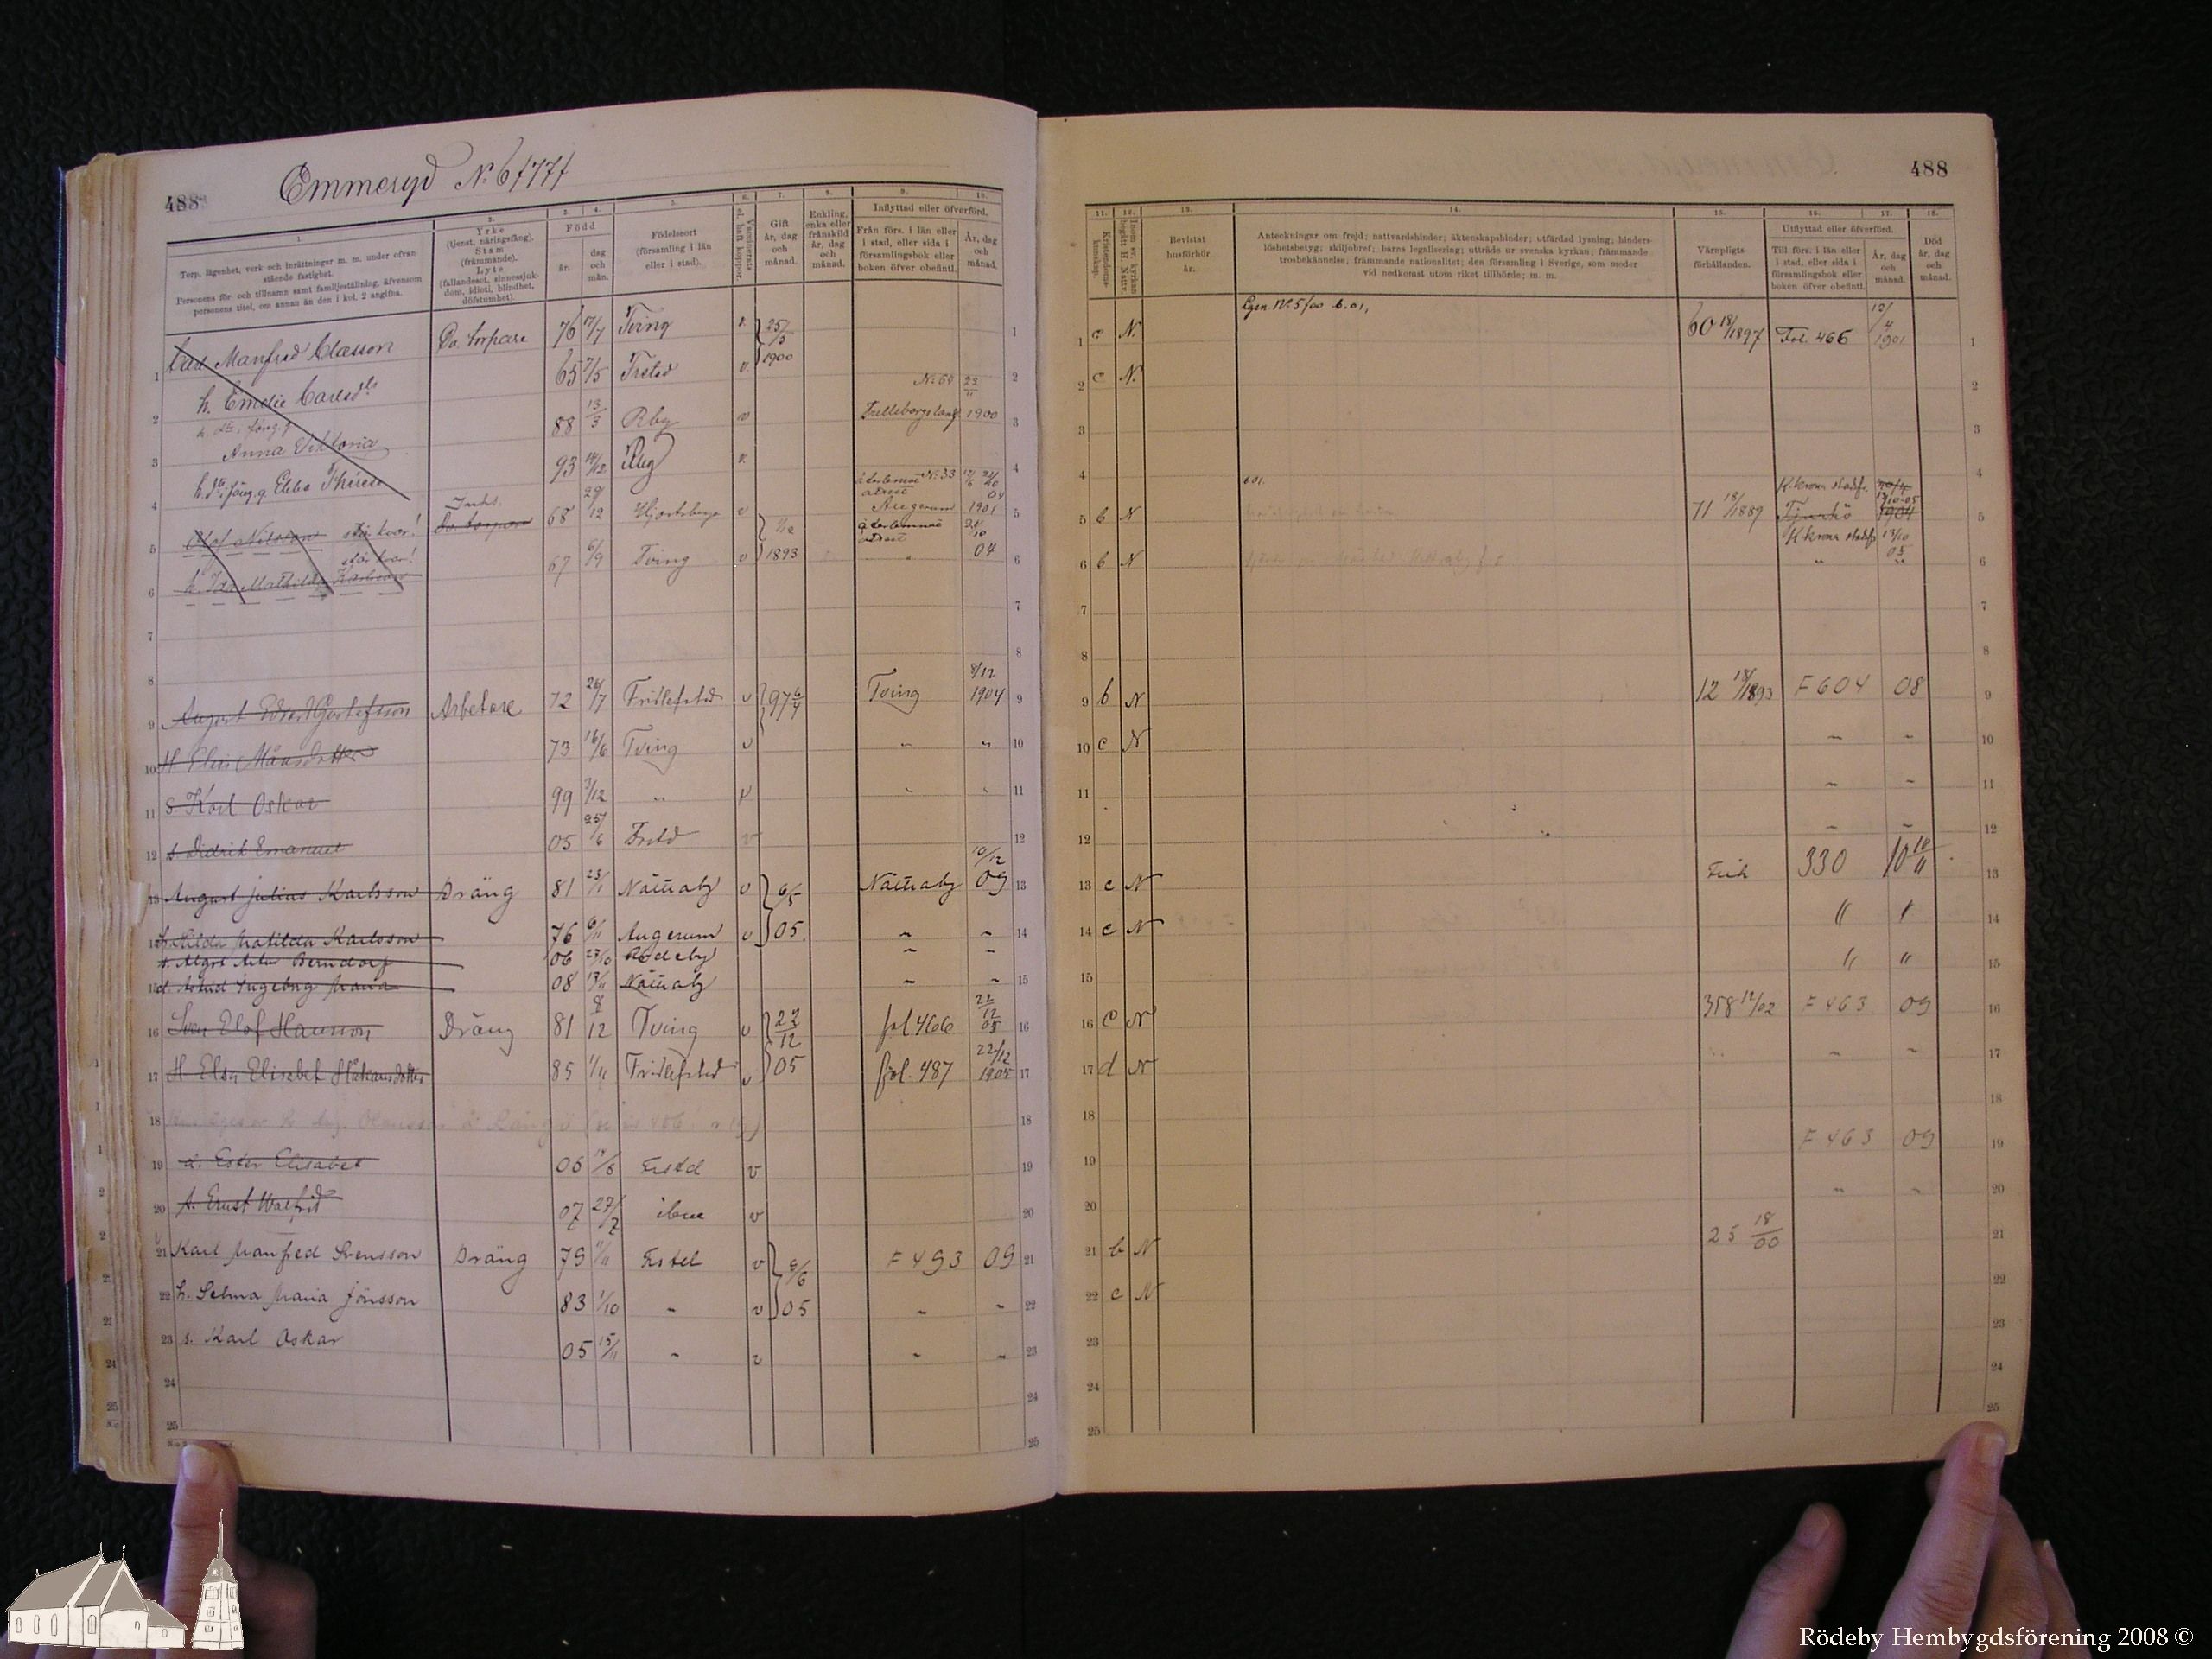 488
Emmeryd No 6/77/
1. 2. 3. 4. 5. 6. 7. 8. 9. 10.
Torp, lägenhet, verk och inrättningar m. m. under ofvan stående fastighet.
Personens för- och tillnamn samt familjeställning, äfvensom personens titel, om annan än den i kol. 2 angifna.
Yrke (tjenst, näringsfång). Stam (främmande). Lyte (fallandesot, sinnessjukdom, idioti, blindhet, döfstumhet).
Född
år. dag och mån.
Födelseort (församling i län eller i stad).
Vaccinerats el. haft koppor.
Gift år, dag och månad.
Enkling, enka eller frånskild år, dag och månad.
Inflyttad eller öfverförd.
Från förs. i län eller i stad, eller sida i församlingsbok eller boken öfver obefintl.
År, dag och månad.
1 Carl Manfred Claesson Do. torpare 76 17/7 Tving v. 25/3 1900
2 h. Emelie Carlsdtr 65 7/5 Frelsd v.
3 Anna Viktoria 88 13/3 Rby v No 64 Trelleborgs landsf 1900
4 Ebba Therese 93 14/12 Rby v.
5 Olof Nilsson står kvar! Inhs. 68 29/12 Hjortsberga v Augerum 1901
6 h. Ida Mathilda Karlsson står kvar! 67 6/9 Tving v 1893 " 04
7
8
9 August Edvard Gustafsson Arbetare 72 26/7 Fridlefstad v 97 6/4 Tving 8/12 1904
10 H Elin Månsdotter 73 16/6 Tving v " "
11 s Karl Oskar 99 3/12 " v " "
12 s. Didrik Emanuel 05 25/6 Frstd v
13 August Julius Karlsson Dräng 81 23/1 Nättraby v 6/5 Nättraby 10/12 09
14 h. Hilda Matilda Karlsson 76 6/11 Augerum v 05. " "
s. Algot Artur Berndorf 06 27/10 Rödeby " "
15 d. Astrid Ingeborg Maria 08 13/11 Nättraby " "
16 Sven Olof Hansson Dräng 81 8/12 Tving v 22/12 fol 466 22/12 05
17 H Elsy Elisabet Håkansdotter 85 1/11 Fridlefstad v 05 fol. 487 22/12 1905
18
19 d. Ester Elisabet 06 Frstd v
20 s. Ernst Walfrid 07 27/7 ibm v
21 Karl Manfred Svensson Dräng 79 11/11 Frstd v 6/6 F 493 09
22 h. Selma Maria Jönsson 83 1/10 " v 05 " "
23 s. Karl Oskar 05 15/11 " v " "
24
25
488
11. 12. 13. 14. 15. 16. 17. 18.
Kristendomskunskap.
Inom sv. kyrkan begått H. Nattv.
Bevistat husförhör år.
Anteckningar om frejd; nattvardshinder; äktenskapshinder; utfärdad lysning; hinderslöshetsbetyg; skiljobref; barns legalisering; utträde ur svenska kyrkan; främmande trosbekännelse; främmande nationalitet; den församling i Sverige, som moder vid nedkomst utom riket tillhörde; m. m.
Värnpligtsförhållanden.
Utflyttad eller öfverförd.
Till förs. i län eller i stad, eller sida i församlingsbok eller boken öfver obefintl.
År, dag och månad.
Död år, dag och månad.
Lysn. No 5/00 b. 01,
1 c N. 60 18/1897 Fol. 466 12/4 1901
2 c N.
3
4
601. K.krona stadsf.
5 b N 71 18/1889 Tjurkö 1904
K.krona stadsf 13/10 05
6 b N " "
7
8
9 b N 12 18/1893 F 604 08
10 c N " "
11 " "
12 " "
13 c N Frik 330 10 10/11
14 c N " "
15 " "
16 c N 358 12/02 F 463 09
17 d N " "
18
19 F 463 09
20 " "
21 b N 25 18/00
22 c N
23
24
25
Rödeby Hembygdsförening 2008 ©